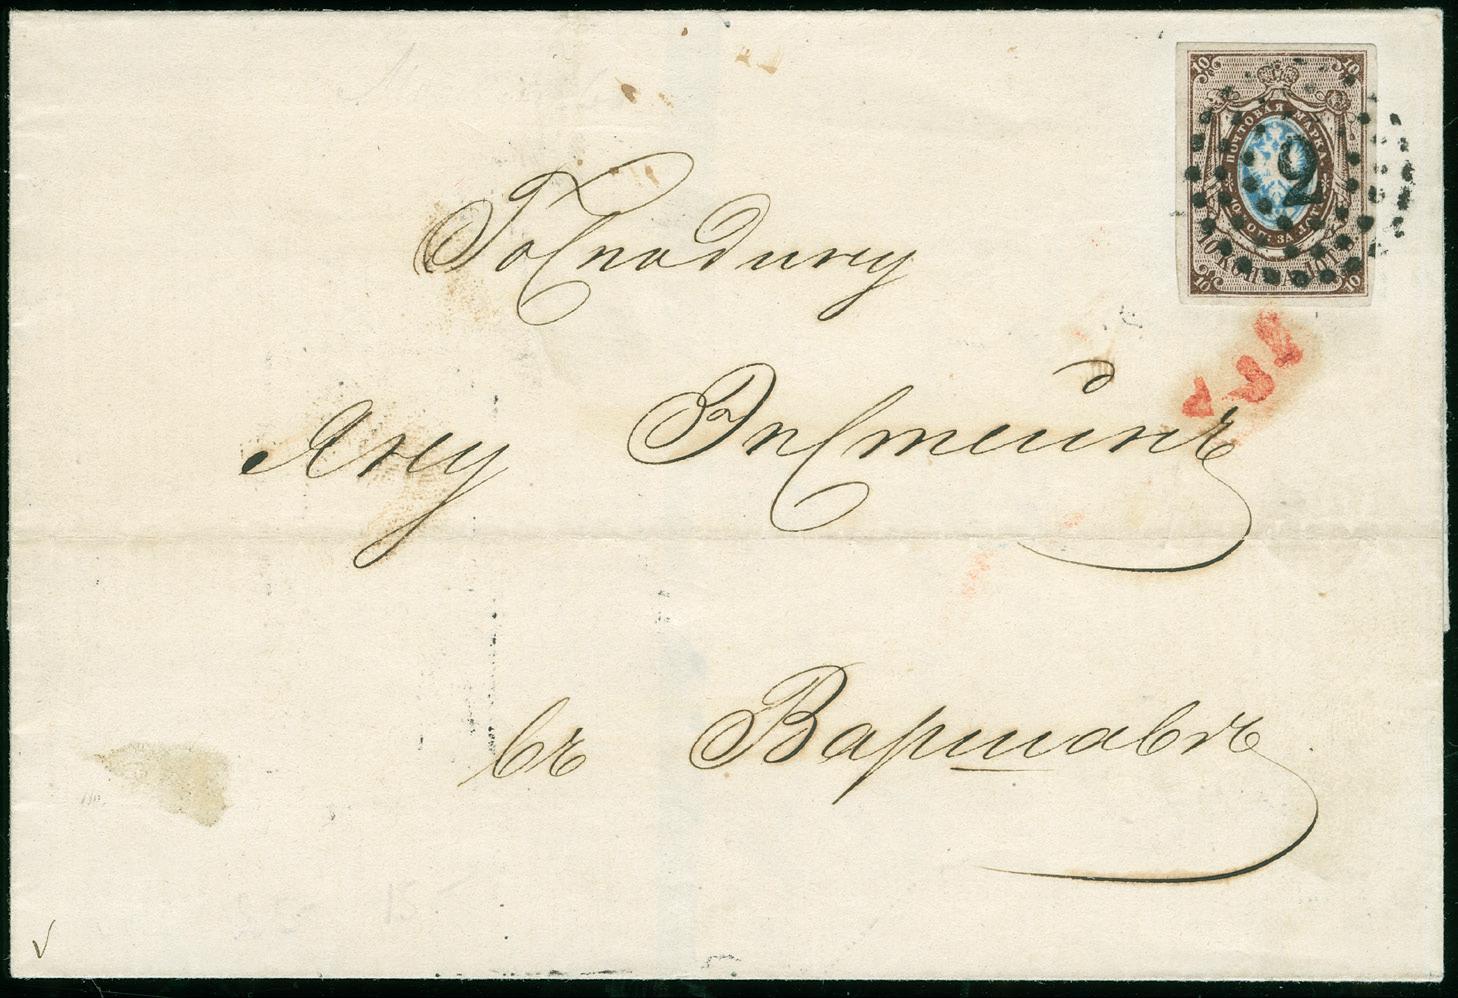 10 10
ПОЧТОВАЯ МАРКА
10 КОП. ЗА ЛОТЪ
2
10 КОП. ЗА ЛОТЪ
10 10
Господину
Яну Эпстейнъ
въ Варшавѣ